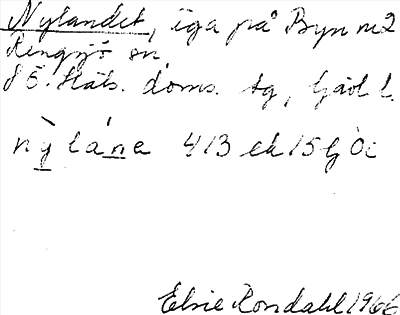 Nylandet, äga på Byn nr 2
Rengsjö sn
S Ö. Häls. doms. tg, Gävl l.
nỳlánɛ 413 ek 15 G Oc
Elsie Rondahl 1966